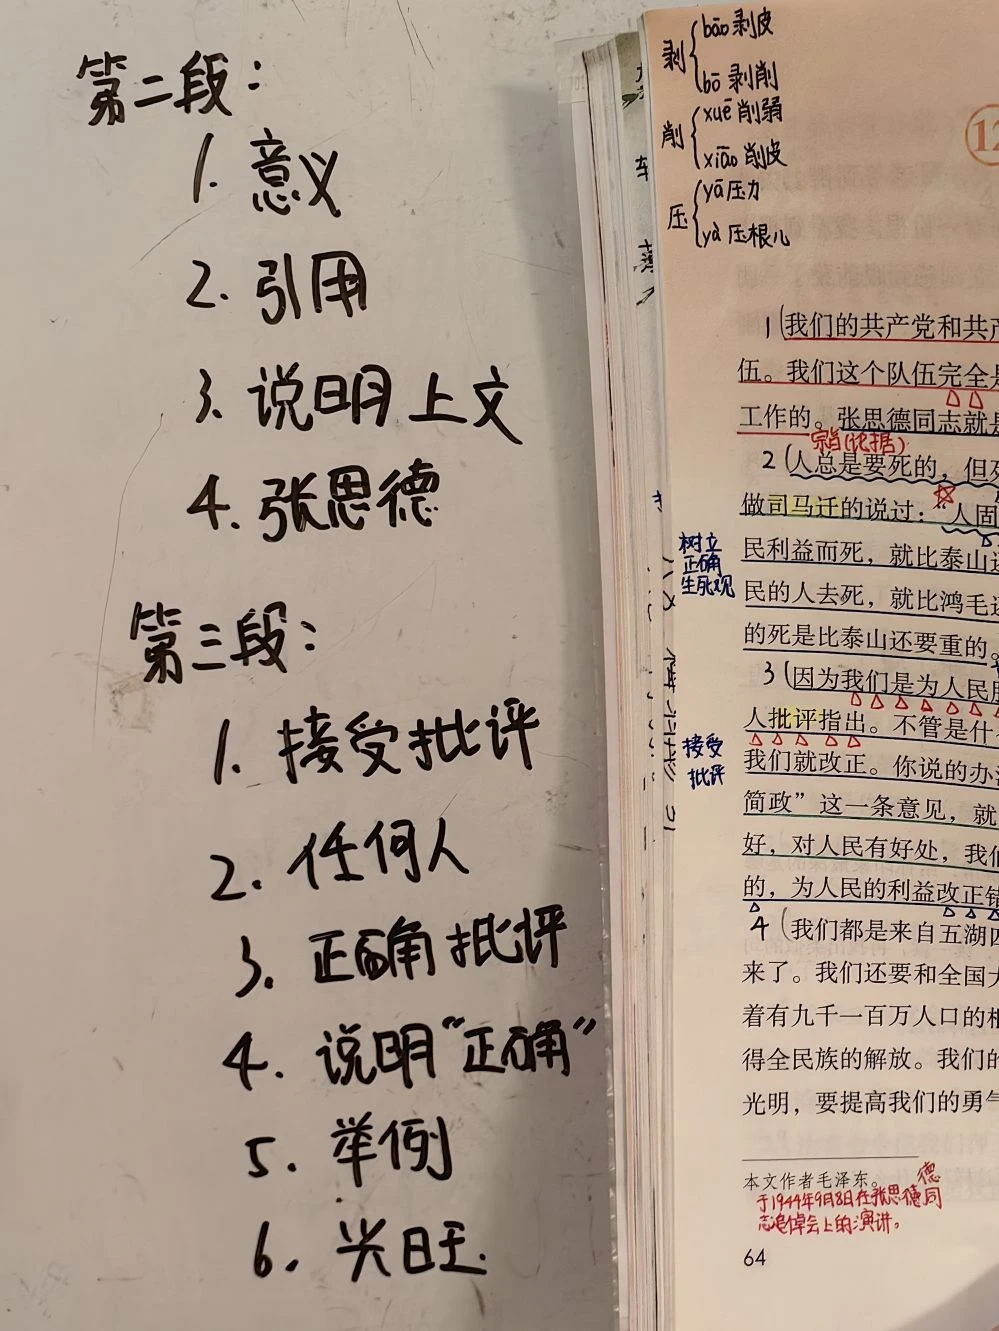 第二段：
1. 意义
2. 引用
3. 说明上文
4. 张思德
第三段：
1. 接受批评
2. 任何人
3. 正确批评
4. 说明“正确”
5. 举例
6. 兴旺.
剥 bāo 剥皮
bō 剥削
削 xuē 削弱
xiāo 削皮
压 yā 压力
yà 压根儿
12
1（我们的共产党和共产
伍。我们这个队伍完全是
工作的。张思德同志就是
宗旨（论据）
2（人总是要死的，但死
做司马迁的说过：“人固
树立
正确
生死观
民利益而死，就比泰山还
民的人去死，就比鸿毛还
的死是比泰山还要重的。
3（因为我们是为人民服
人批评指出。不管是什么
接受
批评
我们就改正。你说的办法
简政”这一条意见，就
好，对人民有好处，我们
的，为人民的利益改正错
4（我们都是来自五湖四
来了。我们还要和全国大
着有九千一百万人口的根
得全民族的解放。我们的
光明，要提高我们的勇气
本文作者毛泽东。
德
于1944年9月8日在张思德同
志追悼会上的演讲。
64